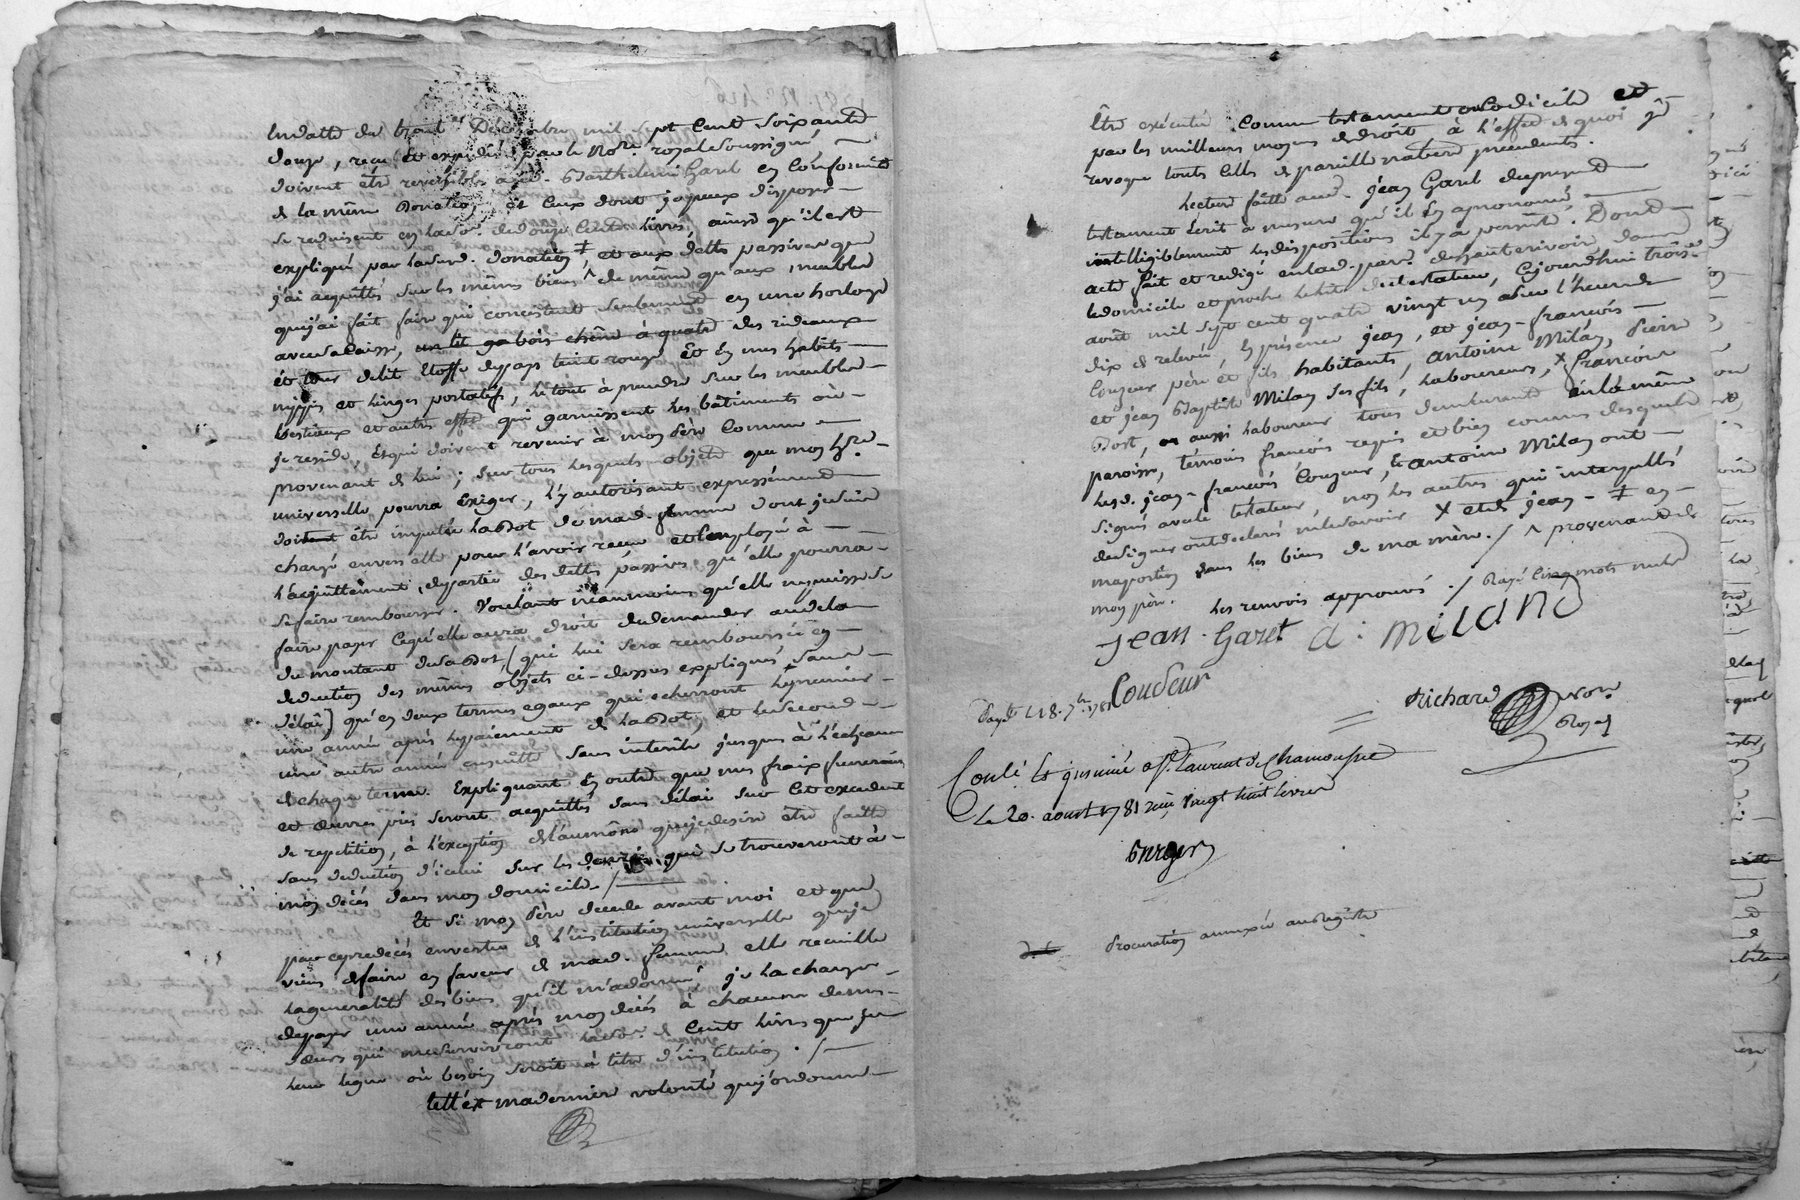 en datte du trente Decembre mil sept Cent soixante
douze, recu et expedié par le Not.re royal soussigné
doivent etre reversibles aud. Barthelemi Garet en Conformité
de la même Donation, et Ceux dont je peux disposer
se reduisent en la so.e de douze Cents livres, ainsi qu'il est
expliqué par lad. donation ‡ et aux dettes passives que
j'ai acquittés sur les mêmes biens ^ de même qu'aux meubles
que j'ai fait faire qui concistent seulement en une horloge
avec sa Caisse, un lit en bois chêne à quatre des rideaux
et tour de lit Etoffe du pays teint rouge Et En mes habits
nippes et linges portatifs, le tout à prendre sur les meubles
bestiaux et autres effets qui garnissent les bâtiments où
je reside, et qui doivent revenir à mon père Comme
provenant de lui ; sur tous lesquels objets que mon h.re
universelle pourra Exiger, l'y autorisant expressément
doivent être imputés la Dot de mad. femme dont je suis
chargé envers elle pour l'avoir recue et Employé à
l'acquittement de partie des dettes passives, qu'elle pourra
se faire rembourser. Voulant neanmoins qu'elle ne puisse se
faire payer Ce qu'elle aura droit de demander au dela
du montant de sa Dot, (qui lui sera remboursée en
deduction des mêmes objets ci-dessus expliqués, sans
délai) qu'en deux termes egaux qui echerront le premier
une année après le paiement de la Dot, et le second
une autre année ensuite sans interêts jusques à l'échéance
de chaque terme. Expliquant En outre que mes fraix funeraires
et œuvres pies seront acquittés sans délai sur Cet excedent
de repetition, à l'exception de l'aumône que je desire être faitte
sans deduction d'icelui sur les denrées qui se trouveront à
mon décés dans mon domicile./
Et si mon père decede avant moi et que
par ce predécés en vertu de l'institution universelle que je
viens de faire en faveur de mad. femme elle recueille
la generalité des biens qu'il m'a donnés, je la charge
de payer une année après mon décés à chacune de mes
sœurs qui me survivront la so.e de Cent livres que je
leur legue où besoin seroit à titre d'institution./
telle est ma derniere volonté que j'ordonne
Être exécutée comme testament ou Codicile et
par les meilleurs moyens de droit, à l'effet de quoi je
revoque touts Ceux de pareille nature precedents.
Lecture faitte aud. jean Garet du present
testament écrit à mesure qu'il En a prononcé
intelligiblement les dispositions il y a persisté. Dont
acte fait et redigé en lad. par. dessaut erivoir dans
le domicile et proche le lit du testateur, Cejourd'hui trois.e
août mil sept cent quatre vingt un sur l'heure de
dix de relevée, En présence jean, et jean-françois
Couzeur père et fils habitants, antoine Milan, Pierre
et jean Baptiste Milan ses fils, laboureurs, x françois
Dost, aussi laboureur tous demeurants en la même
paroisse, témoins françois requis et bien connus desquels
lesd. jean-françois Couzeur, & antoine Milan ont
signés avec le testateur, non les autres qui interpellés
de signer ont declarés ne le savoir x et d. jean - ‡ en
ma portion dans les biens de ma mère./ ^ provenants de
mon père. Les renvois approuvés ./ Rayé Cinq mots nuls
Jean Garet a : MiLAND
Couseur
Payé le 18. 7.bre 1781
Richard Not.re
Royal
Conlé Et insinué a St. Laurent de Chamousset
Le 20. aoust 1781 reçu vingt huit livres
Berger
Procuration annexée au Registre